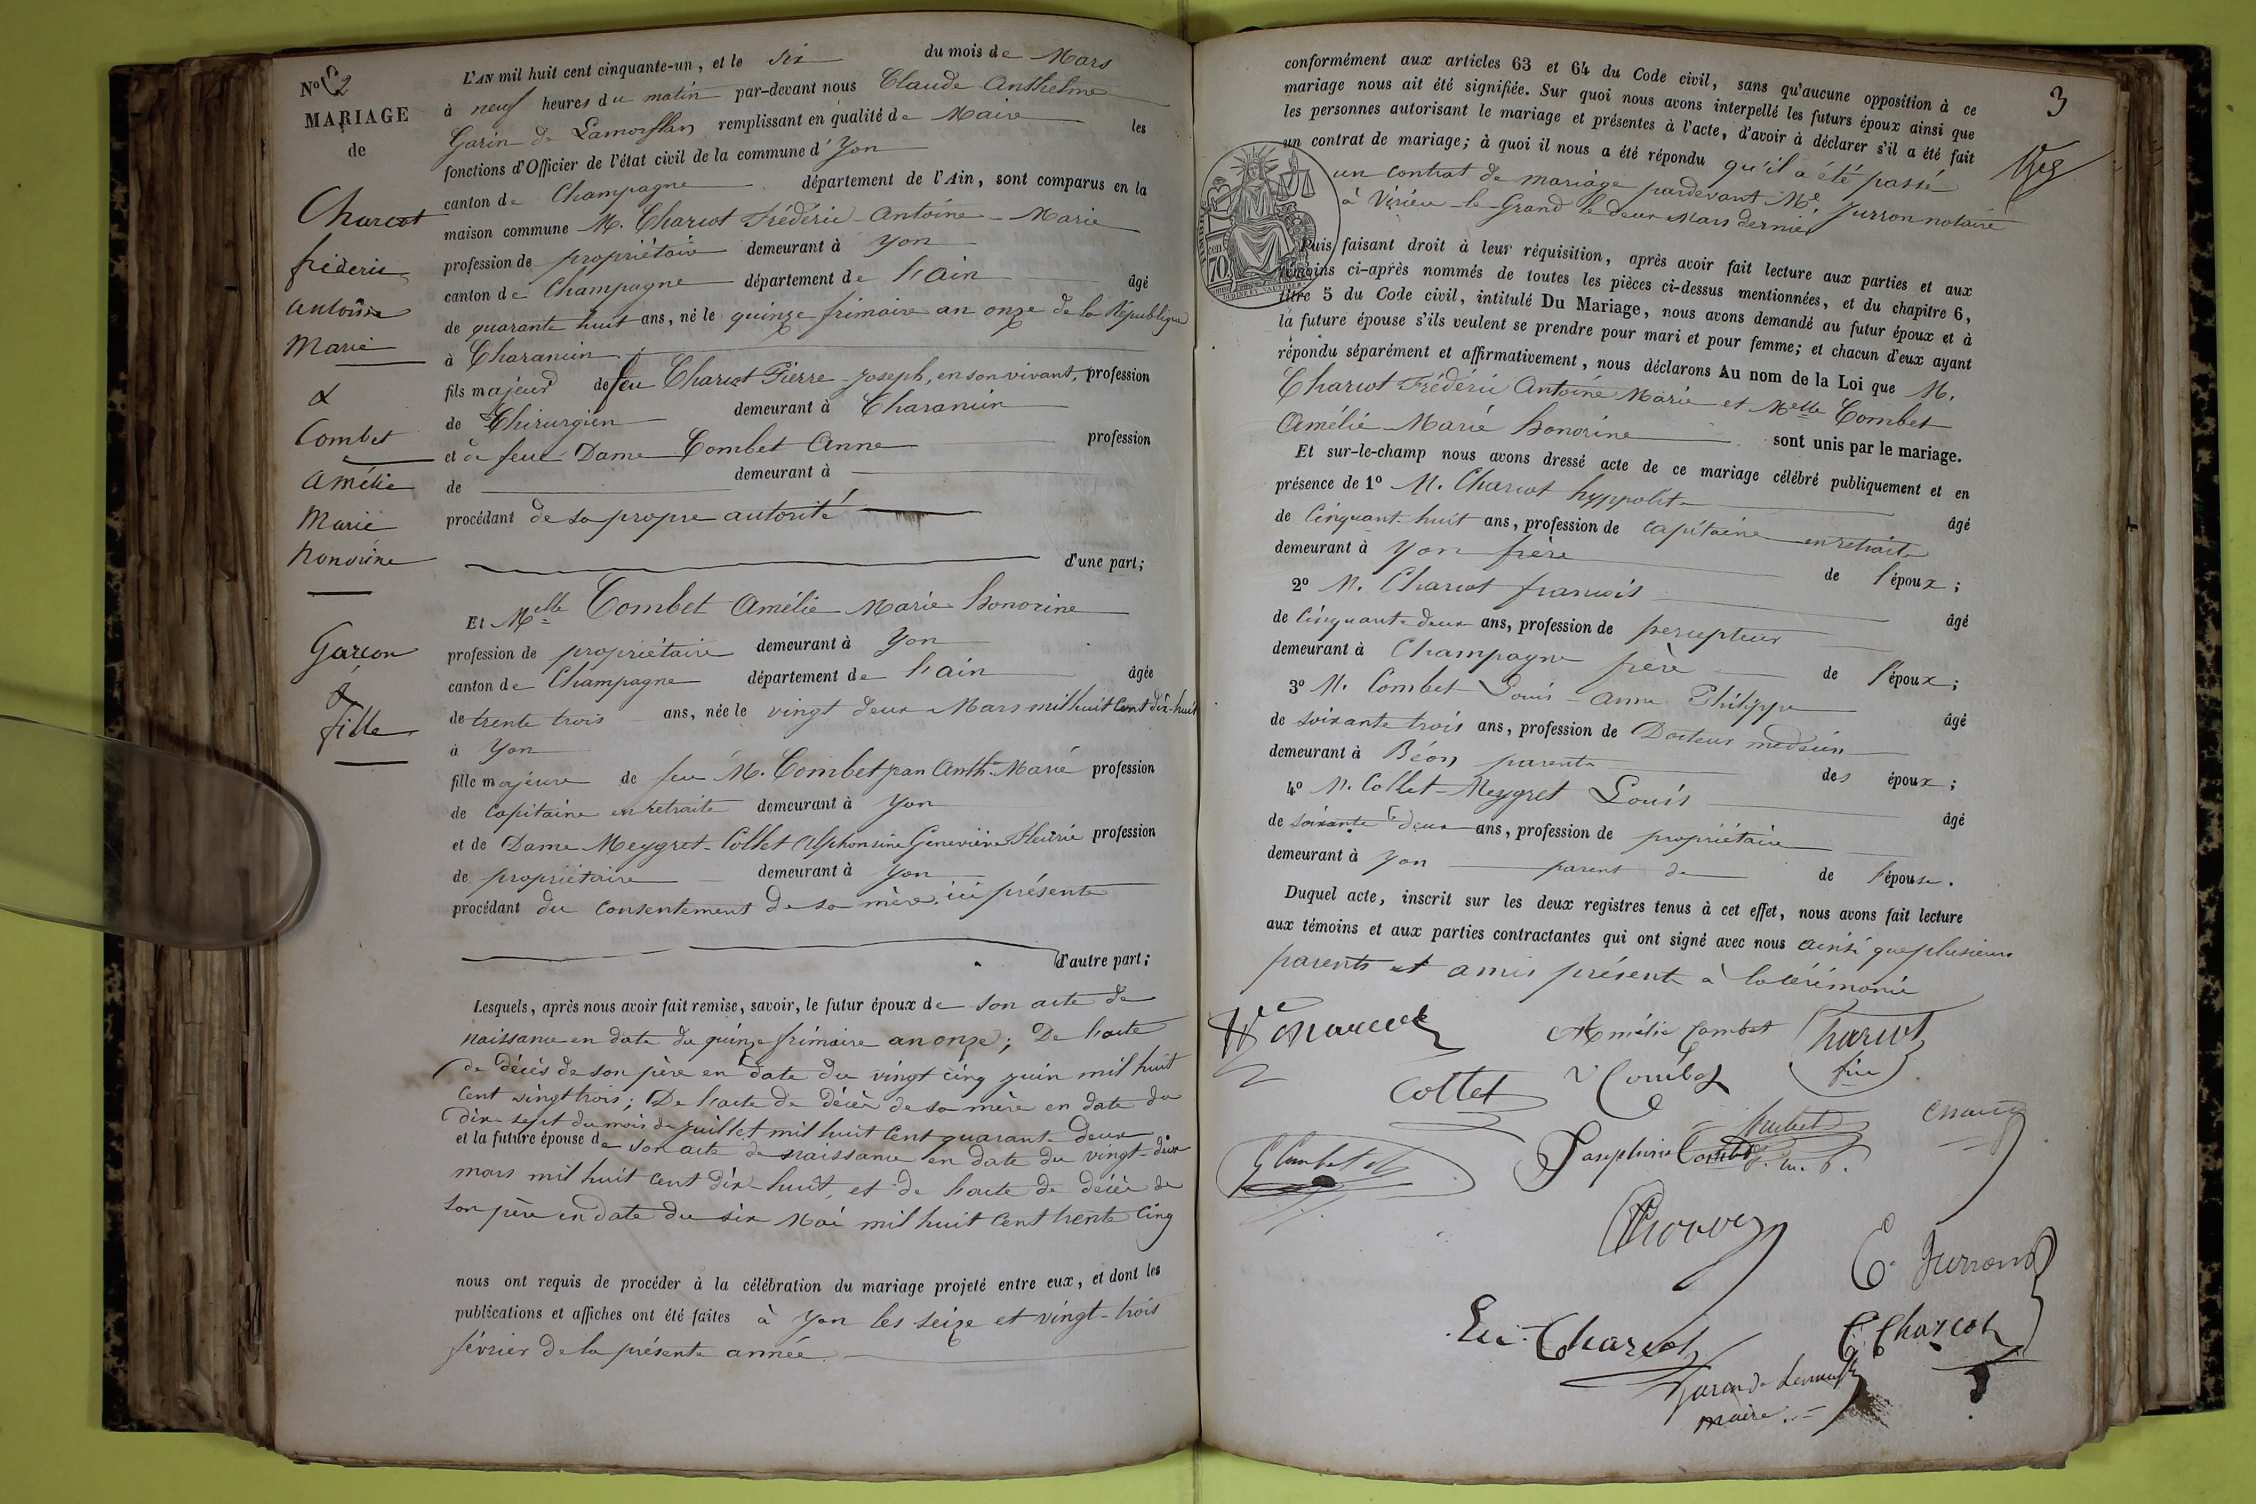 No 2
MARIAGE
de
Charcot
frédéric
antoine
Marie
&
Combet
Amélie
Marie
honorine
Garçon
&
fille
L'AN mil huit cent cinquante-un, et le six du mois de Mars
à neuf heures du matin par-devant nous Claude Anthelme
Garin de Lamorflan remplissant en qualité de Maire les
fonctions d'Officier de l'état civil de la commune d'Yon
canton de Champagne département de l'Ain, sont comparus en la
maison commune M. Charcot Frédéric Antoine Marie
profession de propriétaire demeurant à Yon
canton de Champagne département de l'ain âgé
de quarante huit ans, né le quinze frimaire an onze de la République
à Charancin
fils majeur de feu Charcot Pierre Joseph, en son vivant, profession
de Chirurgien demeurant à Charancin
et de feue Dame Combet Anne profession
de demeurant à
procédant de sa propre autorité
d'une part;
Et Melle Combet Amélie Marie honorine
profession de propriétaire demeurant à Yon
canton de Champagne département de l'ain âgée
de trente trois ans, née le vingt deux Mars mil huit Cent dix-huit
à Yon
fille majeure de feu M. Combet jean Anth. Marie profession
de Capitaine en retraite demeurant à Yon
et de Dame Meygret-Collet Alphonsine Geneviève Fleurie profession
de propriétaire demeurant à Yon
procédant du consentement de sa mère ici présente
d'autre part;
Lesquels, après nous avoir fait remise, savoir, le futur époux de son acte de
naissance en date du quinze frimaire an onze; De l'acte
de décès de son père en date du vingt cinq juin mil huit
Cent vingt trois; De l'acte de décès de sa mère en date du
dix-sept du mois de juillet mil huit cent quarante deux
et la future épouse de son acte de naissance en date du vingt-deux
mars mil huit cent dix-huit, et de l'acte de décès de
son père en date du six Mai mil huit cent trente cinq
nous ont requis de procéder à la célébration du mariage projeté entre eux, et dont les
publications et affiches ont été faites à Yon les seize et vingt-trois
février de la présente année.
3
conformément aux articles 63 et 64 du Code civil, sans qu'aucune opposition à ce
mariage nous ait été signifiée. Sur quoi nous avons interpellé les futurs époux ainsi que
les personnes autorisant le mariage et présentes à l'acte, d'avoir à déclarer s'il a été fait
un contrat de mariage; à quoi il nous a été répondu qu'il a été passé
un contrat de mariage pardevant Me. Jurron notaire
à Virieu-le-Grand le deux Mars dernier
TIMBRE
70 cen
Puis faisant droit à leur réquisition, après avoir fait lecture aux parties et aux
témoins ci-après nommés de toutes les pièces ci-dessus mentionnées, et du chapitre 6,
titre 5 du Code civil, intitulé Du Mariage, nous avons demandé au futur époux et à
la future épouse s'ils veulent se prendre pour mari et pour femme; et chacun d'eux ayant
répondu séparément et affirmativement, nous déclarons Au nom de la Loi que M.
Charcot Frédéric Antoine Marie et Melle Combet
Amélie Marie honorine sont unis par le mariage.
Et sur-le-champ nous avons dressé acte de ce mariage célébré publiquement et en
présence de 1º M. Charcot hyppolite âgé
de Cinquante-huit ans, profession de capitaine en retraite
demeurant à Yon frère de l'époux;
2º M. Charcot francois âgé
de Cinquante deux ans, profession de percepteur
demeurant à Champagne frère de l'époux;
3º M. Combet Louis Anne Philippe âgé
de soixante trois ans, profession de Docteur medecin
demeurant à Béon parent des époux;
4º M. Collet-Meygret Louis âgé
de soixante deux ans, profession de propriétaire
demeurant à Yon parent de de l'épouse.
Duquel acte, inscrit sur les deux registres tenus à cet effet, nous avons fait lecture
aux témoins et aux parties contractantes qui ont signé avec nous ainsi que plusieurs
parents et amis présent à la cérémonie
Charcot Amélie Combet Charcot
fric
Collet Combet
Josephine Combet
E. Jurron
Charcot C Charcot
Garin de Lamorflan
maire